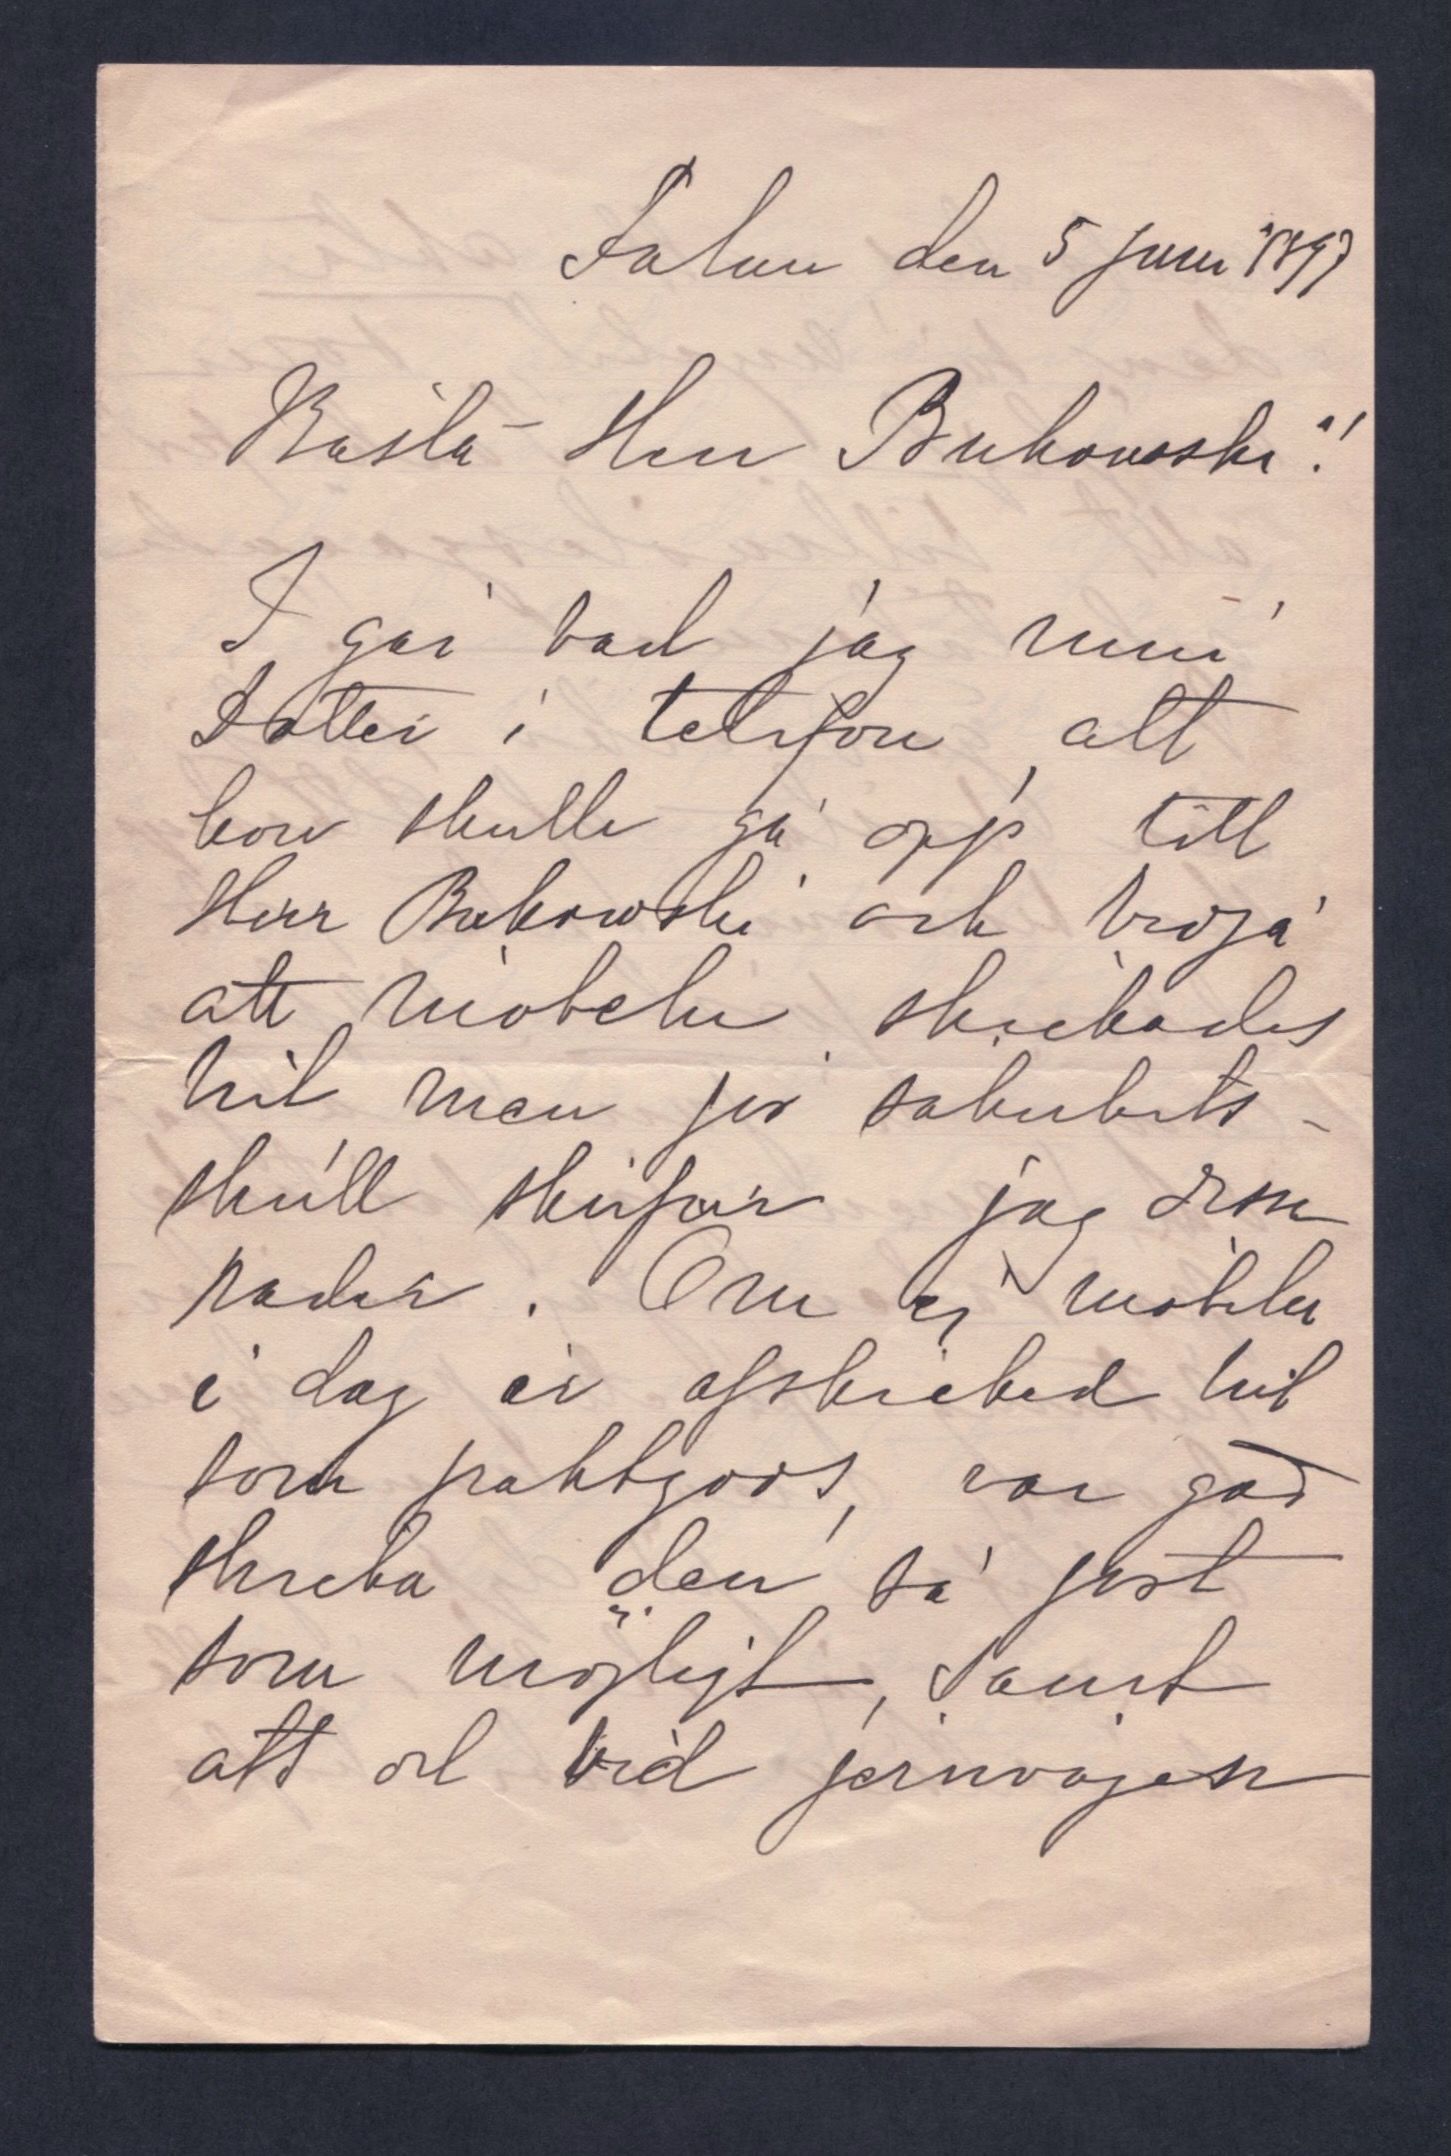 Falun den 5 Juni 1897
Bästa Herr Bukowski!
I går bad jag min
Dotter i telefon, att
hon skulle gå opp till
Herr Bukowski och bedja
att möbeln skickades
hit men för säkerhets-
skull skrifver jag dessa
rader. Om ej möbeln
i dag är afskickad hit
som paktgods, var god
skicka den så fort
som möjligt, samt
att vid jernvägen